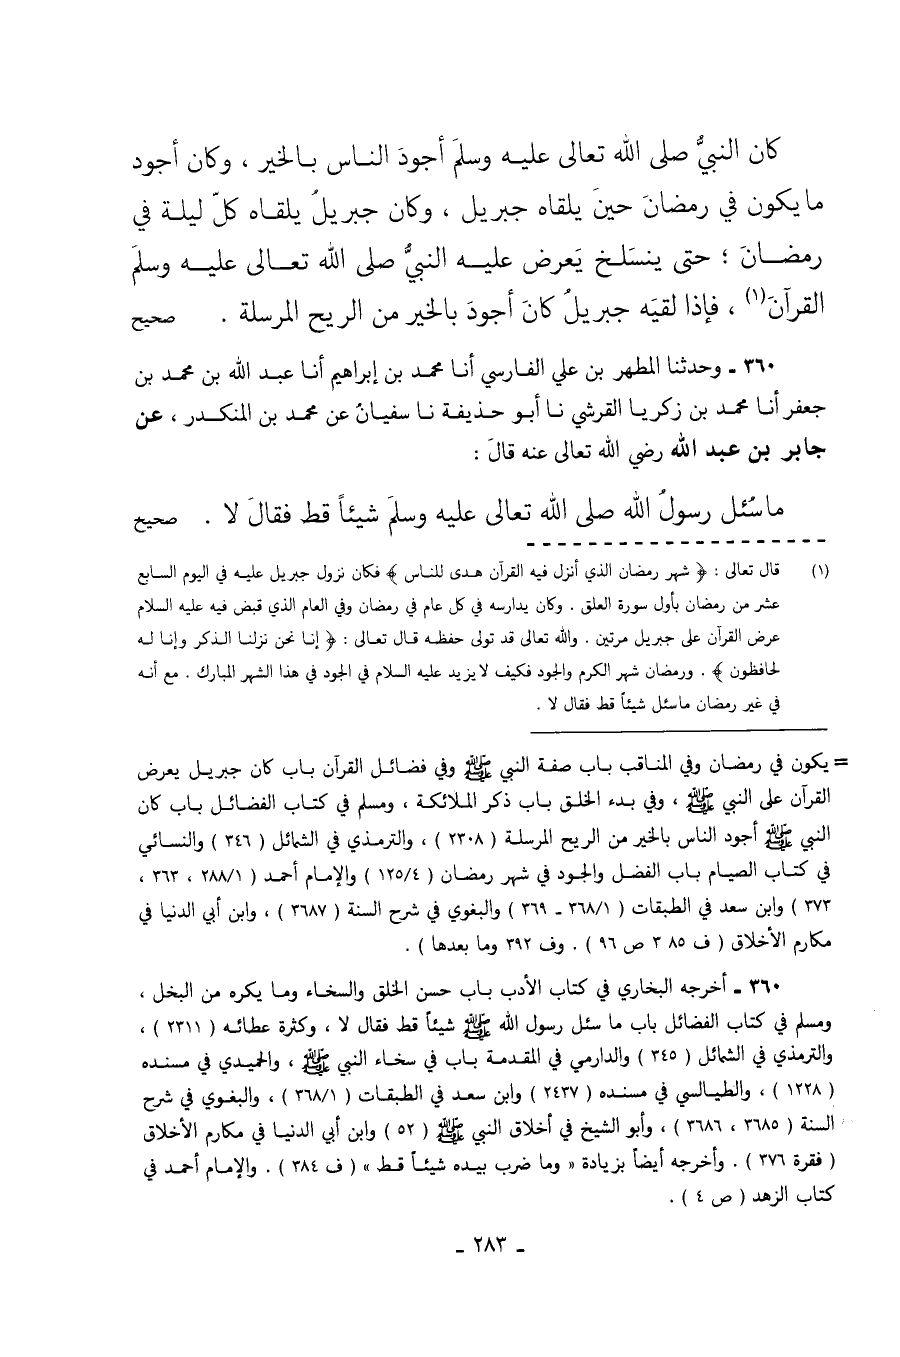 كان النبيُّ صلى الله تعالى عليه وسلمَ أجودَ الناس بالخير ، وكان أجود
ما يكون في رمضانَ حينَ يلقاه جبريل ، وكان جبريلُ يلقاه كلّ ليلة في
رمضانَ ؛ حتى ينسَلخ يَعرض عليه النبيُّ صلى الله تعالى عليه وسلمَ
القرآنَ(١) ، فإذا لقيَه جبريلُ كانَ أجودَ بالخير من الريح المرسلة . صحيح
٣٦٠ ـ وحدثنا المطهر بن علي الفارسي أنا محمد بن إبراهيم أنا عبد الله بن محمد بن
جعفر أنا محمد بن زكريا القرشي نا أبو حذيفة نا سفيانُ عن محمد بن المنكدر ، عن
جابر بن عبد الله رضي الله تعالى عنه قالَ :
ما سُئل رسولُ الله صلى الله تعالى عليه وسلمَ شيئاً قط فقالَ لا . صحيح
(١) قال تعالى : ﴿ شهر رمضان الذي أنزل فيه القرآن هدى للناس ﴾ فكان نزول جبريل عليه في اليوم السابع
عشر من رمضان بأول سورة العلق . وكان يدارسه في كل عام في رمضان وفي العام الذي قبض فيه عليه السلام
عرض القرآن على جبريل مرتين . والله تعالى قد تولى حفظه قال تعالى : ﴿ إنا نحن نزلنا الذكر وإنا له
لحافظون ﴾ . ورمضان شهر الكرم والجود فكيف لا يزيد عليه السلام في الجود في هذا الشهر المبارك . مع أنه
في غير رمضان ما سئل شيئاً قط فقال لا .
= يكون في رمضان وفي المناقب باب صفة النبي ﷺ وفي فضائل القرآن باب كان جبريل يعرض
القرآن على النبي ﷺ ، وفي بدء الخلق باب ذكر الملائكة ، ومسلم في كتاب الفضائل باب كان
النبي ﷺ أجود الناس بالخير من الريح المرسلة ( ٢٣٠٨ ) ، والترمذي في الشمائل ( ٣٤٦ ) والنسائي
في كتاب الصيام باب الفضل والجود في شهر رمضان ( ١٢٥/٤ ) والإمام أحمد ( ٢٨٨/١ ، ٣٦٣ ،
٣٧٣ ) وابن سعد في الطبقات ( ٣٦٨/١ ـ ٣٦٩ ) والبغوي في شرح السنة ( ٣٦٨٧ ) ، وابن أبي الدنيا في
مكارم الأخلاق ( ف ٣٨٥ ص ٩٦ ) . وف ٣٩٢ وما بعدها ) .
٣٦٠ ـ أخرجه البخاري في كتاب الأدب باب حسن الخلق والسخاء وما يكره من البخل ،
ومسلم في كتاب الفضائل باب ما سئل رسول الله ﷺ شيئاً قط فقال لا ، وكثرة عطائه ( ٢٣١١ ) ،
والترمذي في الشمائل ( ٣٤٥ ) والدارمي في المقدمة باب في سخاء النبي ﷺ ، والحميدي في مسنده
( ١٢٢٨ ) ، والطيالسي في مسنده ( ٢٤٣٧ ) وابن سعد في الطبقات ( ٣٦٨/١ ) ، والبغوي في شرح
السنة ( ٣٦٨٥ ، ٣٦٨٦ ) ، وأبو الشيخ في أخلاق النبي ﷺ ( ٥٢ ) وابن أبي الدنيا في مكارم الأخلاق
( فقرة ٣٧٦ ) . وأخرجه أيضاً بزيادة « وما ضرب بيده شيئاً قط » ( ف ٣٨٤ ) . والإمام أحمد في
كتاب الزهد ( ص ٤ ) .
ـ ٢٨٣ ـ